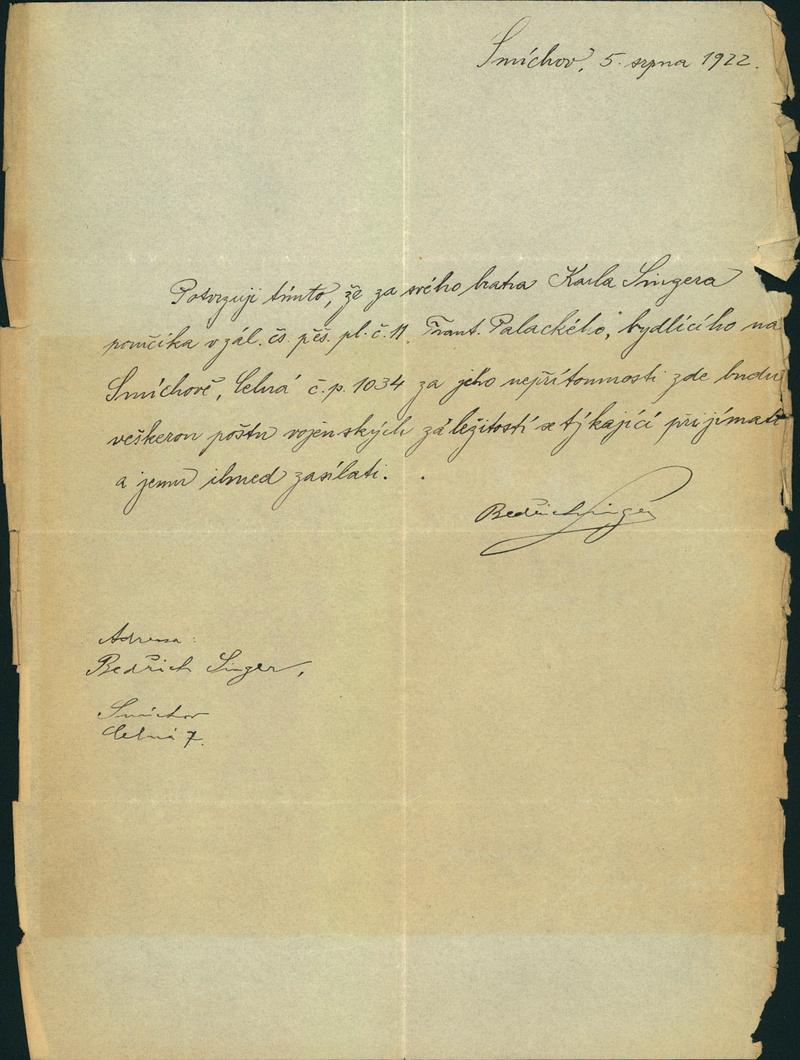 Smíchov, 5. srpna 1922.
Potvrzuji tímto, že za svého bratra Karla Singera
poručíka v zál. čs. pěš. pl. č. 11 „Frant. Palackého", bydlícího na
Smíchově, Celná č.p. 1034 za jeho nepřítomnosti zde budu
veškerou poštu vojenských záležitostí se týkající přijímati
a jemu ihned zasílati.
Bedřich Singer
Adressa:
Bedřich Singer,
Smíchov
Celná 7.